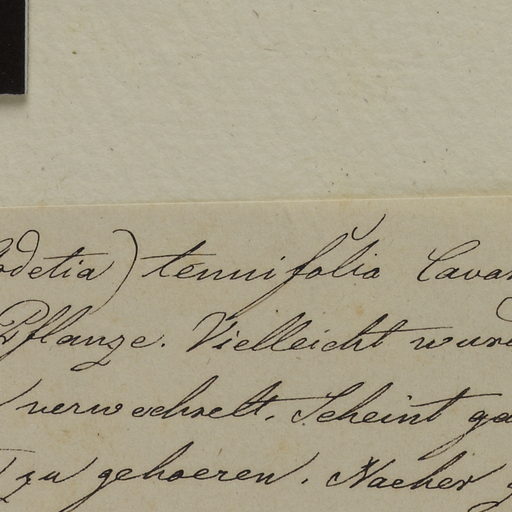 odetia) tenuifolia Cavan
Pflanze. Vielleicht wurd
verwechselt. Scheint ga
zu gehoeren. Naeher g